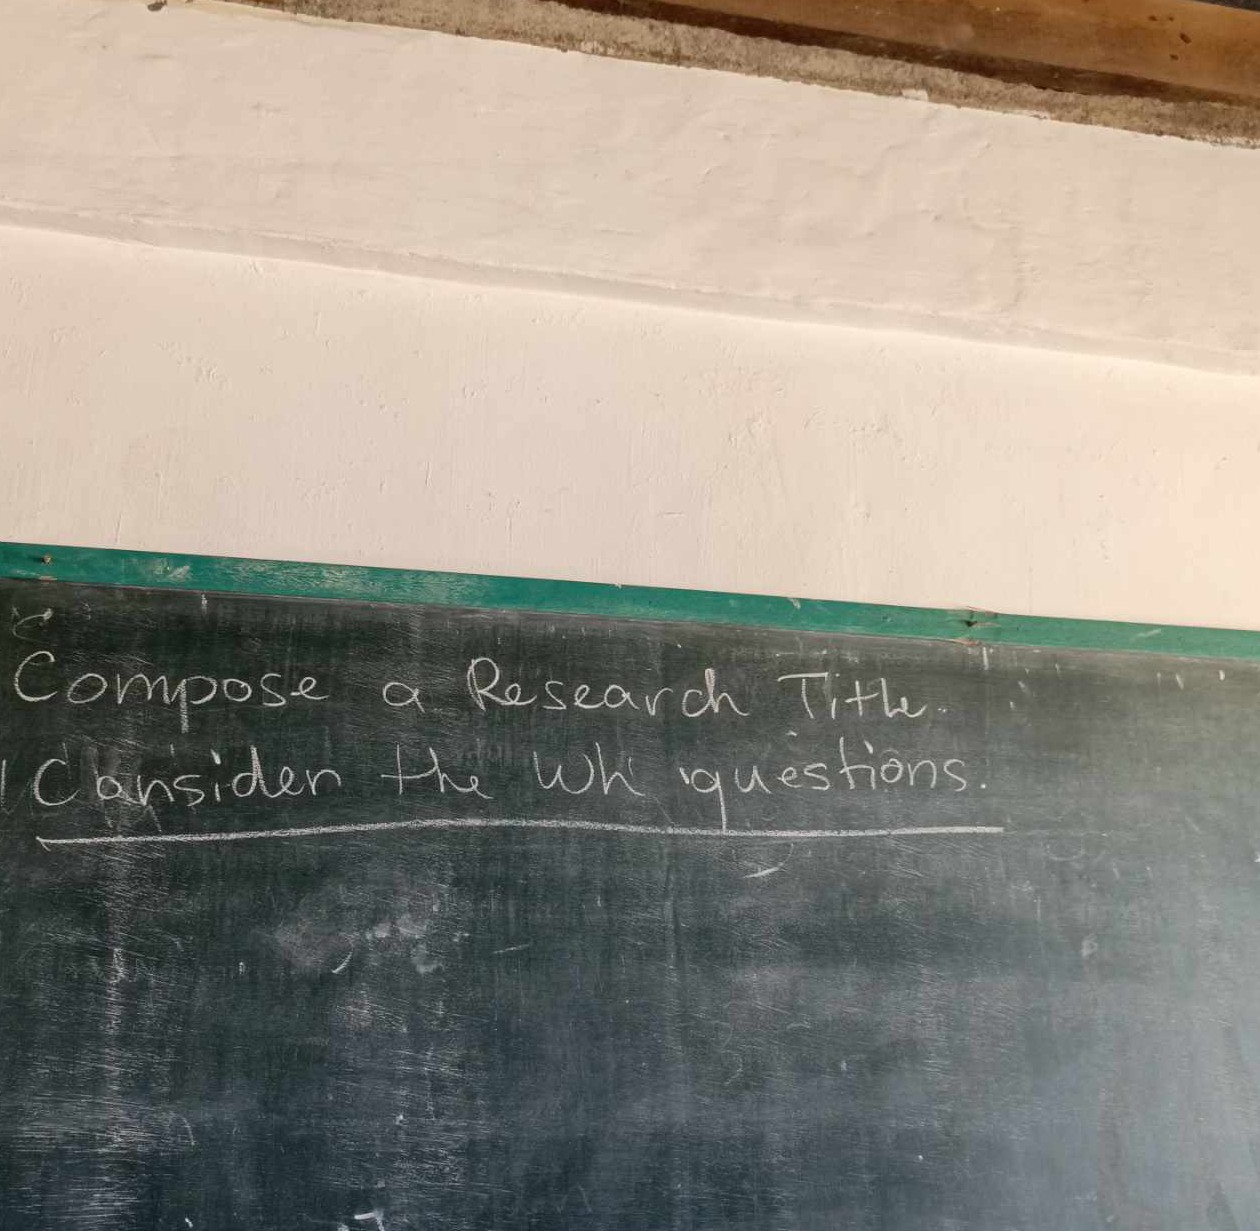 Compose a Research Title.
Consider the Wh questions.